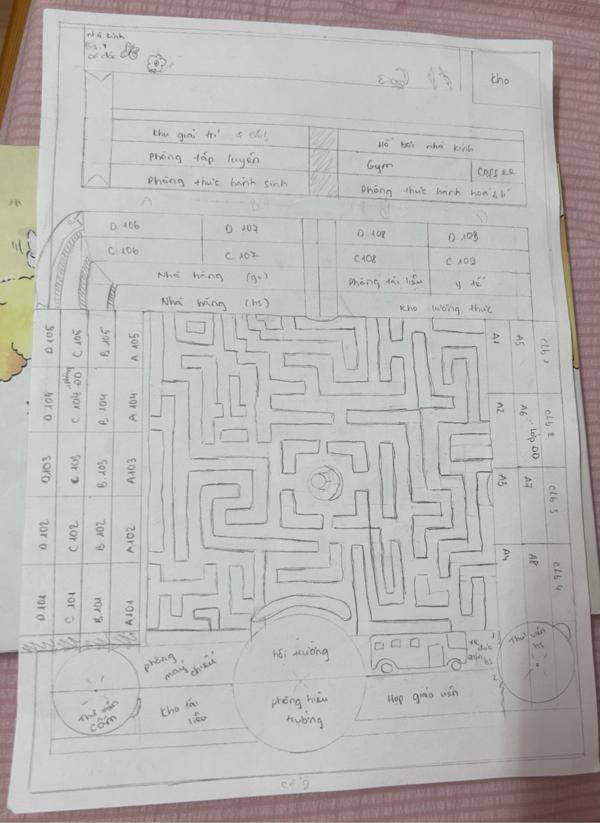 nhà kính
Kho
khu giải trí & clb
Hồ bơi nhà kính
Phòng tập luyện
Gym
Coffee
Phòng thực hành sinh
Phòng thực hành hoá & lí
D.106
D 107
D 108
D 109
C.106
C 107
C108
C 109
Nhà hàng (gv)
Phòng tài liệu
y tế
Nhà hàng (hs)
Kho lương thực
D 105
C 105
B 105
A 105
D 104
C 104
B 104
A 104
D103
C 103
B.103
A103
D 102
C 102
B 102
A 102
D 101
C 101
B 101
A101
A1
A5
clb 1
A2
A6
clb 2
A3
A7
clb 3
A4
A8
clb 4
Thư viện cấm
phòng máy chiếu
Kho tài liệu
hội trường
phòng hiệu trưởng
Họp giáo viên
Thư viện số